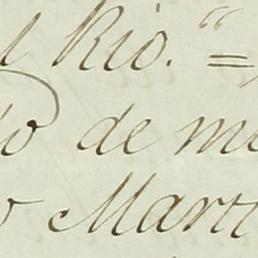 l Rio. =
o de m
o Mart